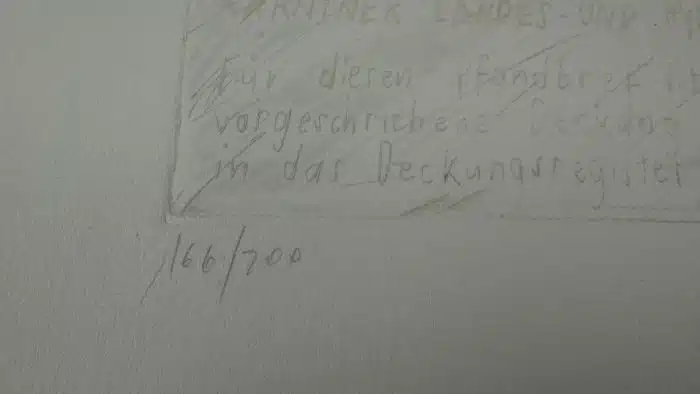 KÄRNTNER LANDES-UND
Für diesen Pfandbrief ist
vorgeschriebene Deckung
in das Deckungsregister
166/700